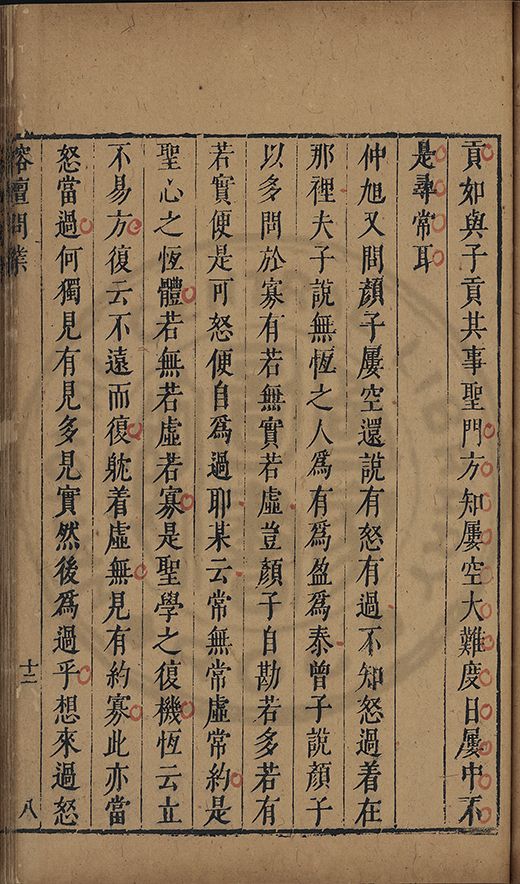 貢如與子貢其事聖門方知屢空大難度日屢中不
是尋常耳
仲旭又問顏子屢空還說有怒有過不知怒過着在
那裡夫子說無恆之人為有為盈為泰曾子說顏子
以多問於寡有若無實若虛豈顏子自勘若多若有
若實便是可怒便自為過耶某云常無常虛常約是
聖心之恆體若無若虛若寡是聖學之復機恆云立
不易方復云不遠而復躭着虛無見有約寡此亦當
怒當過何獨見有見多見實然後為過乎想來過怒
榕壇問業
十二
八